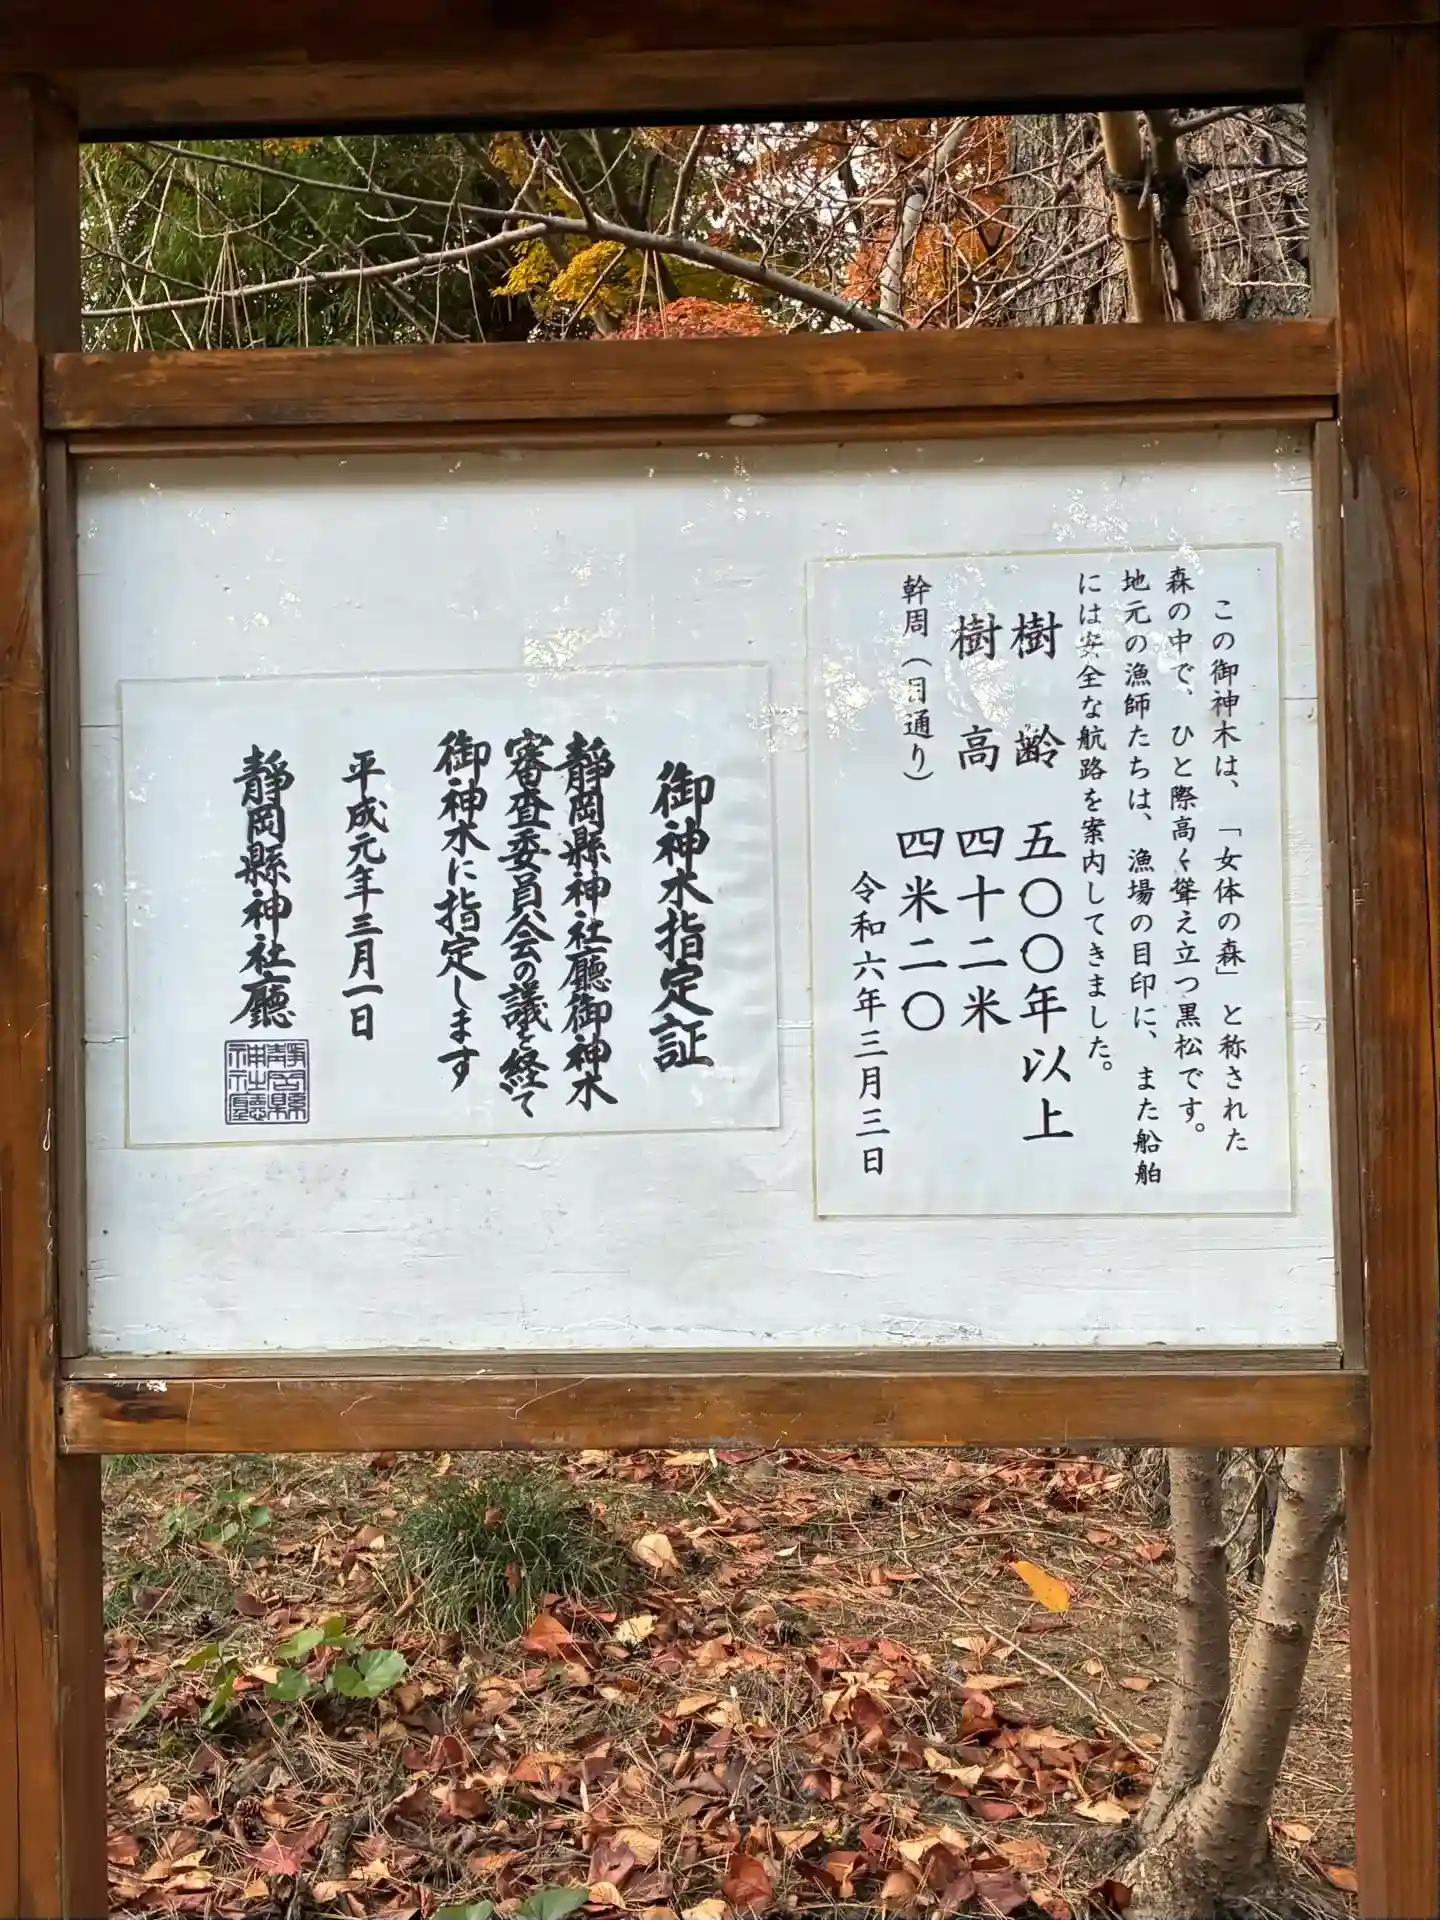 この御神木は、「女体の森」と称された
森の中で、ひと際高く聳え立つ黒松です。
地元の漁師たちは、漁場の目印に、また船舶
には安全な航路を案内してきました。
樹齢 五〇〇年以上
樹高 四十二米
幹周（目通り） 四米二〇
令和六年三月三日
御神木指定証
靜岡縣神社廳御神木
審査委員会の議を経て
御神木に指定します
平成元年三月一日
靜岡縣神社廳
靜岡縣
神社廳